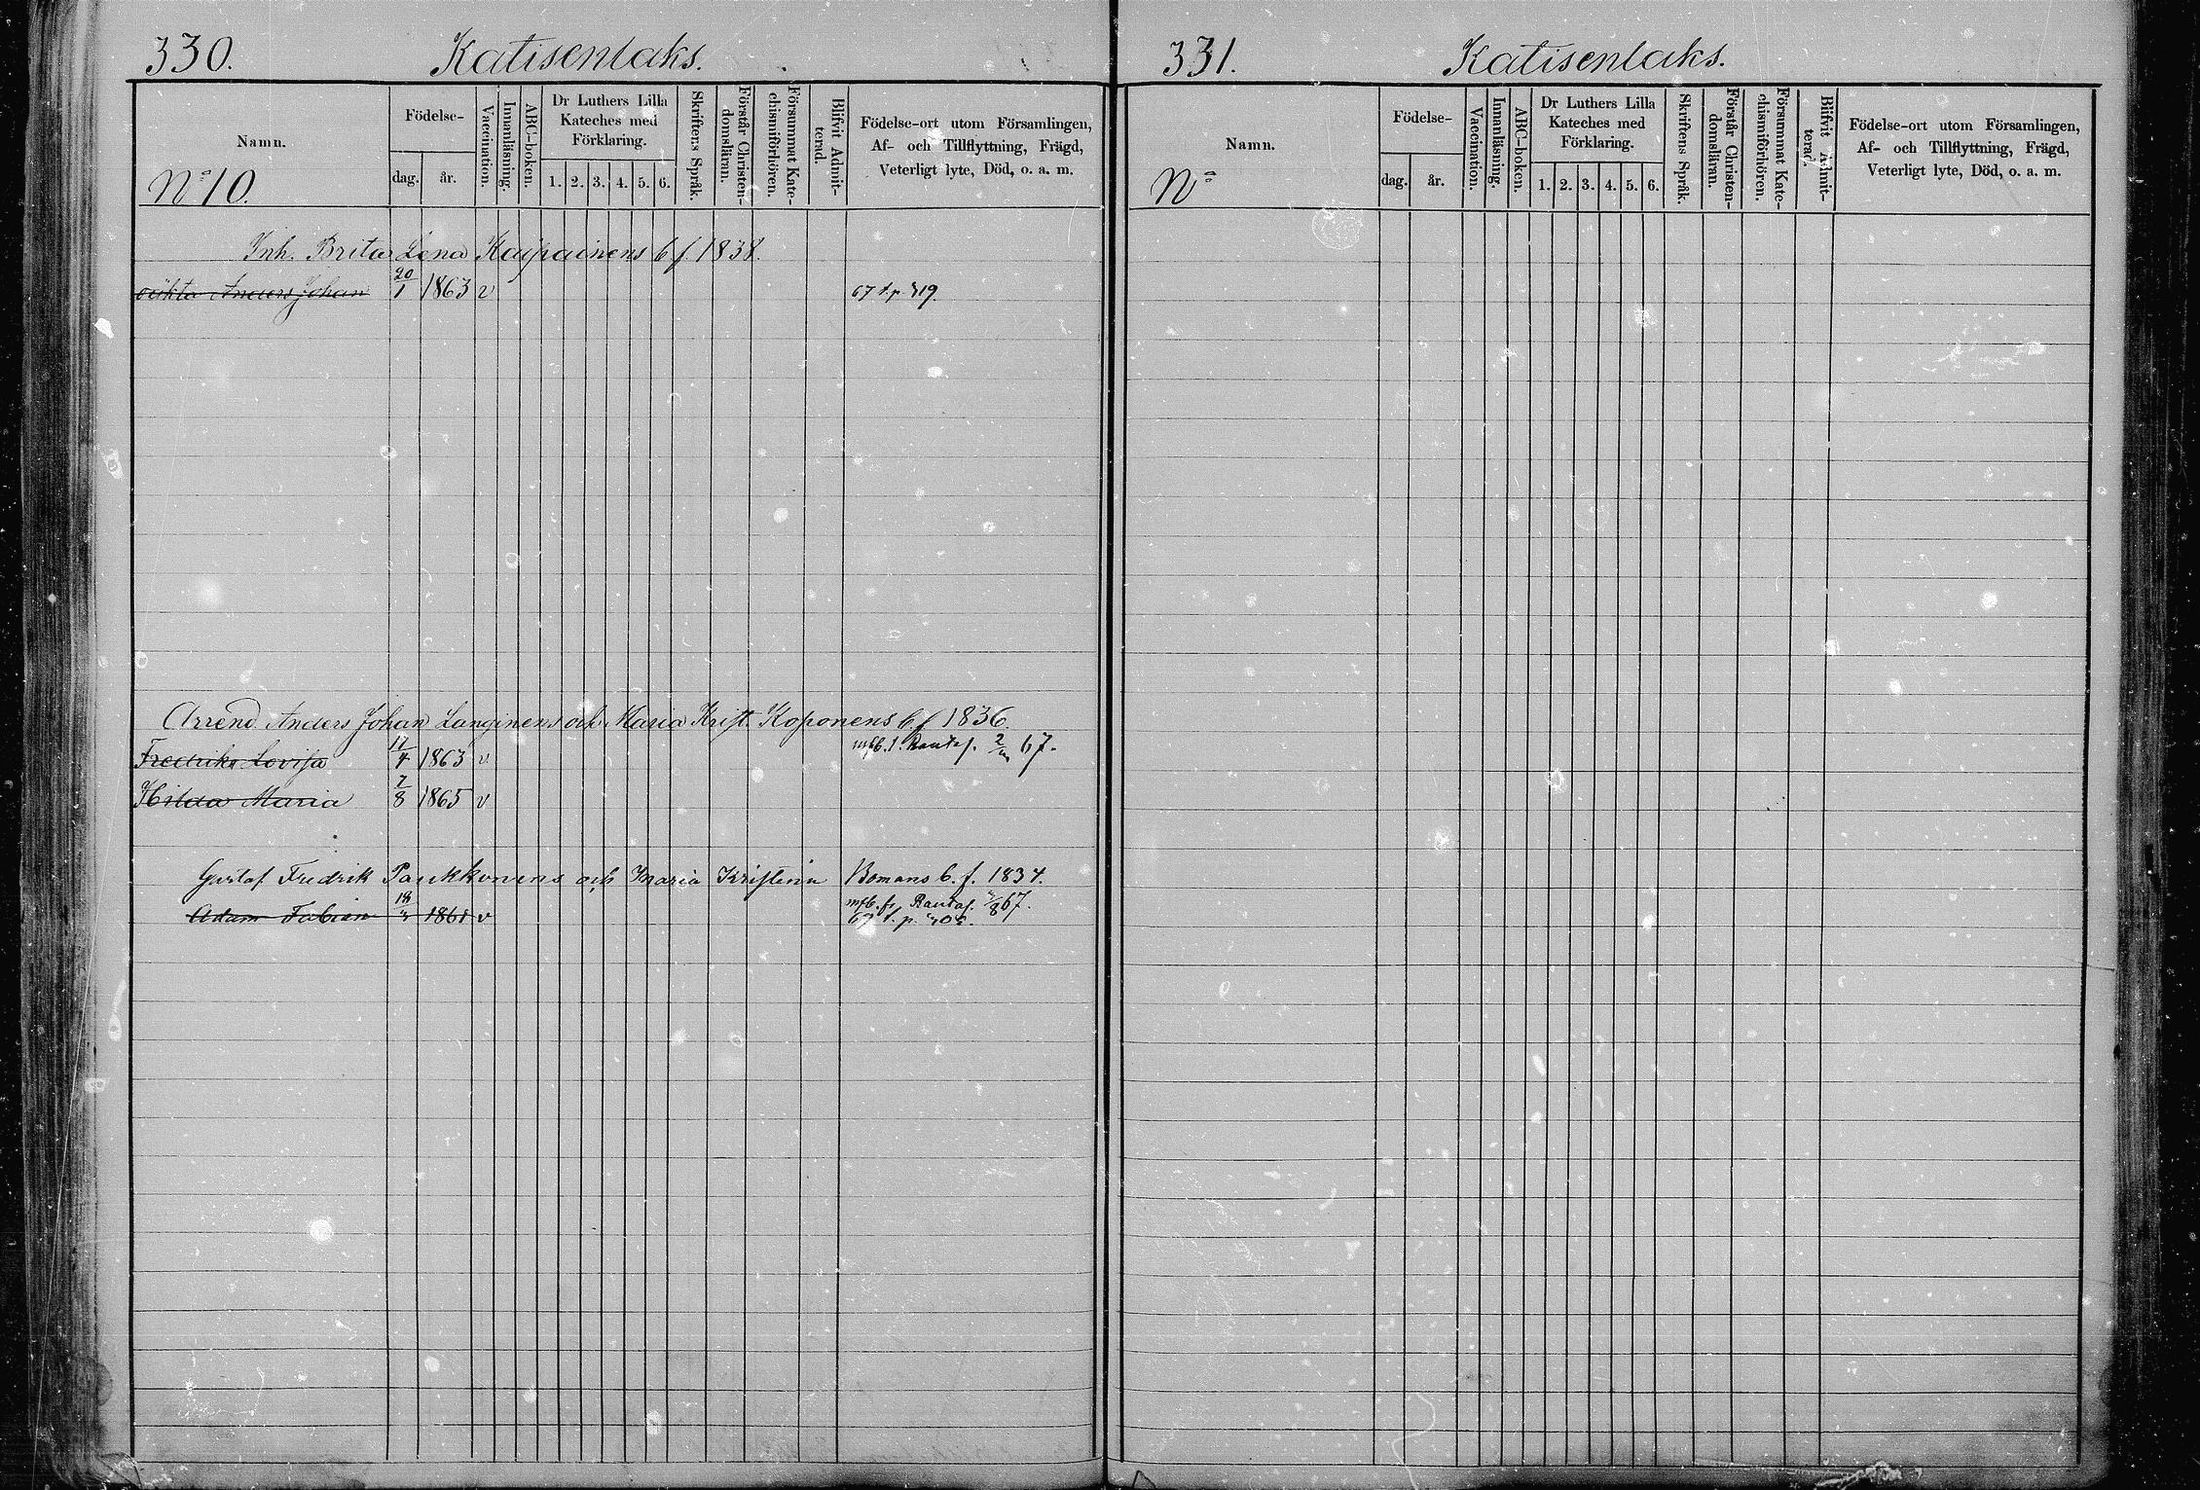 330. Katisenlaks.
Namn.
Födelse-
dag. år.
Vaccination.
Innanläsning.
ABC-boken.
Dr Luthers Lilla
Kateches med
Förklaring.
1. 2. 3. 4. 5. 6.
Skriftens Språk.
Förstår Christen-
domsläran.
Försummat Kate-
chismiförhören.
Blifvit Admit-
terad.
Födelse-ort utom Församlingen,
Af- och Tillflyttning, Frägd,
Veterligt lyte, Död, o. a. m.
No 10.
Inh. Brita Lena Kaipainens b f. 1838.
oäkta Anders Johan 20/1 1863 v 67 t.p. 719
Arrend. Anders Johan Langinens och Maria Krist. Koponens b f 1836.
Fredrika Lovisa 17/4 1863 v mfb. t. Rautas. 67.
Hilda Maria 7/8 1865 v
Gustaf Fredrik Paukkonens och Maria Kristina Bomans b. f. 1834.
Adam Fabian 1861 v mfb. fr. Rautas. 67.
t. p.
331. Katisenlaks.
Namn.
Födelse-
dag. år.
Vaccination.
Innanläsning.
ABC-boken.
Dr Luthers Lilla
Kateches med
Förklaring.
1. 2. 3. 4. 5. 6.
Skriftens Språk.
Förstår Christen-
domsläran.
Försummat Kate-
chismiförhören.
Blifvit Admit-
terad.
Födelse-ort utom Församlingen,
Af- och Tillflyttning, Frägd,
Veterligt lyte, Död, o. a. m.
No